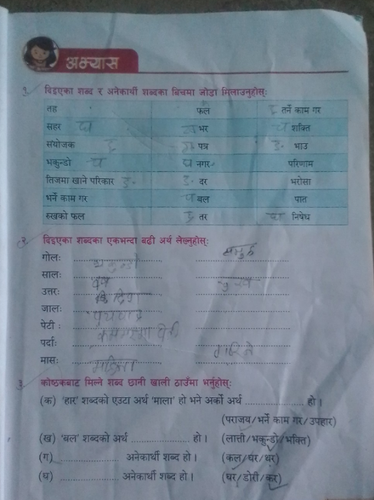 अभ्यास
१. दिइएका शब्द र अनेकार्थी शब्दका बिचमा जोडा मिलाउनुहोस्:
तह फल तर्ने काम गर
सहर भर शक्ति
संयोजक पत्र भाउ
भकुन्डो नगर परिणाम
तिजमा खाने परिकार दर भरोसा
भर्ने काम गर बल पात
रुखको फल तर निषेध
२. दिइएका शब्दका एकभन्दा बढी अर्थ लेख्नुहोस्:
गोल: भकुन्डो समुह
साल:
उत्तर:
जाल:
पेटी :
पर्दा:
मास: महिना
३. कोष्ठकबाट मिल्ने शब्द छानी खाली ठाउँमा भर्नुहोस्:
(क) 'हार' शब्दको एउटा अर्थ 'माला' हो भने अर्को अर्थ .................. हो ।
(पराजय/भर्ने काम गर/उपहार)
(ख) 'बल' शब्दको अर्थ .................. हो । (लात्ती/भकुन्डो/भक्ति)
(ग) .................. अनेकार्थी शब्द हो । (कल/घर/थर)
(घ) .................. अनेकार्थी शब्द हो । (घर/डोरी/कर)